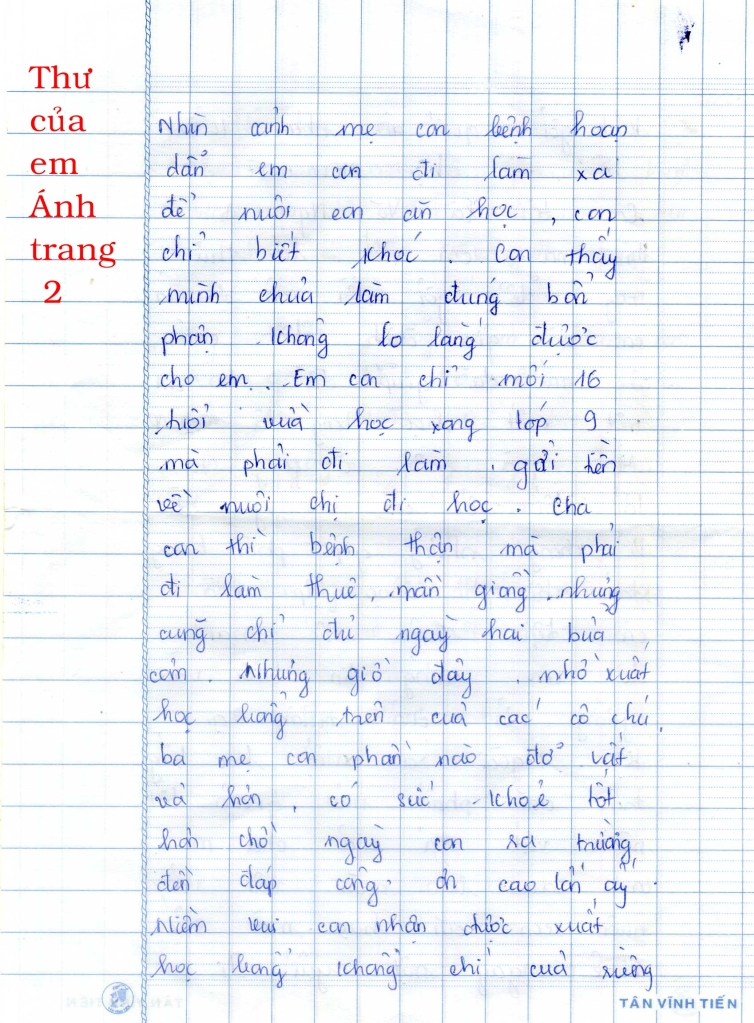 Thư
của
em
Ánh
trang
2
Nhìn cảnh mẹ con bệnh hoạn
dẩn em con đi làm xa
để nuôi con ăn học, con
chỉ biết khóc. Con thấy
mình chưa làm đúng bổn
phận không lo lắng được
cho em. Em con chỉ mới 16
tuổi vừa học xong lớp 9
mà phải đi làm, gửi tiền
về nuôi chị đi học. Cha
con thì bệnh thận mà phải
đi làm thuê, mần giông, nhưng
cũng chỉ đủ ngày hai bửa
cơm. Nhưng giờ đây, nhờ xuất
học bổng trên của các cô chú,
ba mẹ con phần nào đở vất
vả hơn, có sức khoẻ tốt
hơn chờ ngày con ra trường
đền đáp công ơn cao lớn ấy.
Niềm vui con nhận được xuất
học bổng không chỉ của riêng
TÂN VĨNH TIẾN